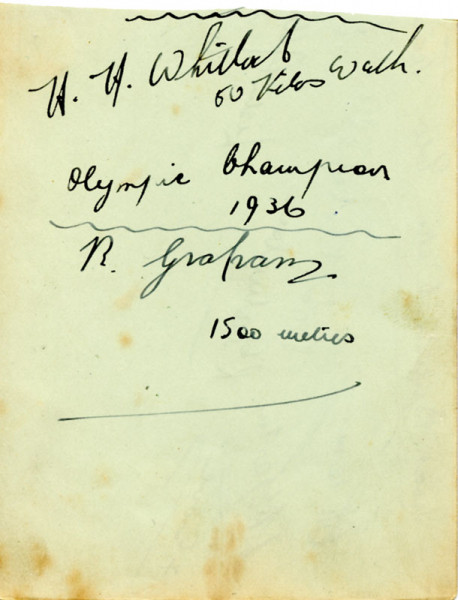 H. H. Whitlock
50 Kilos Walk.
Olympic Champion
1936
R. Graham
1500 metres